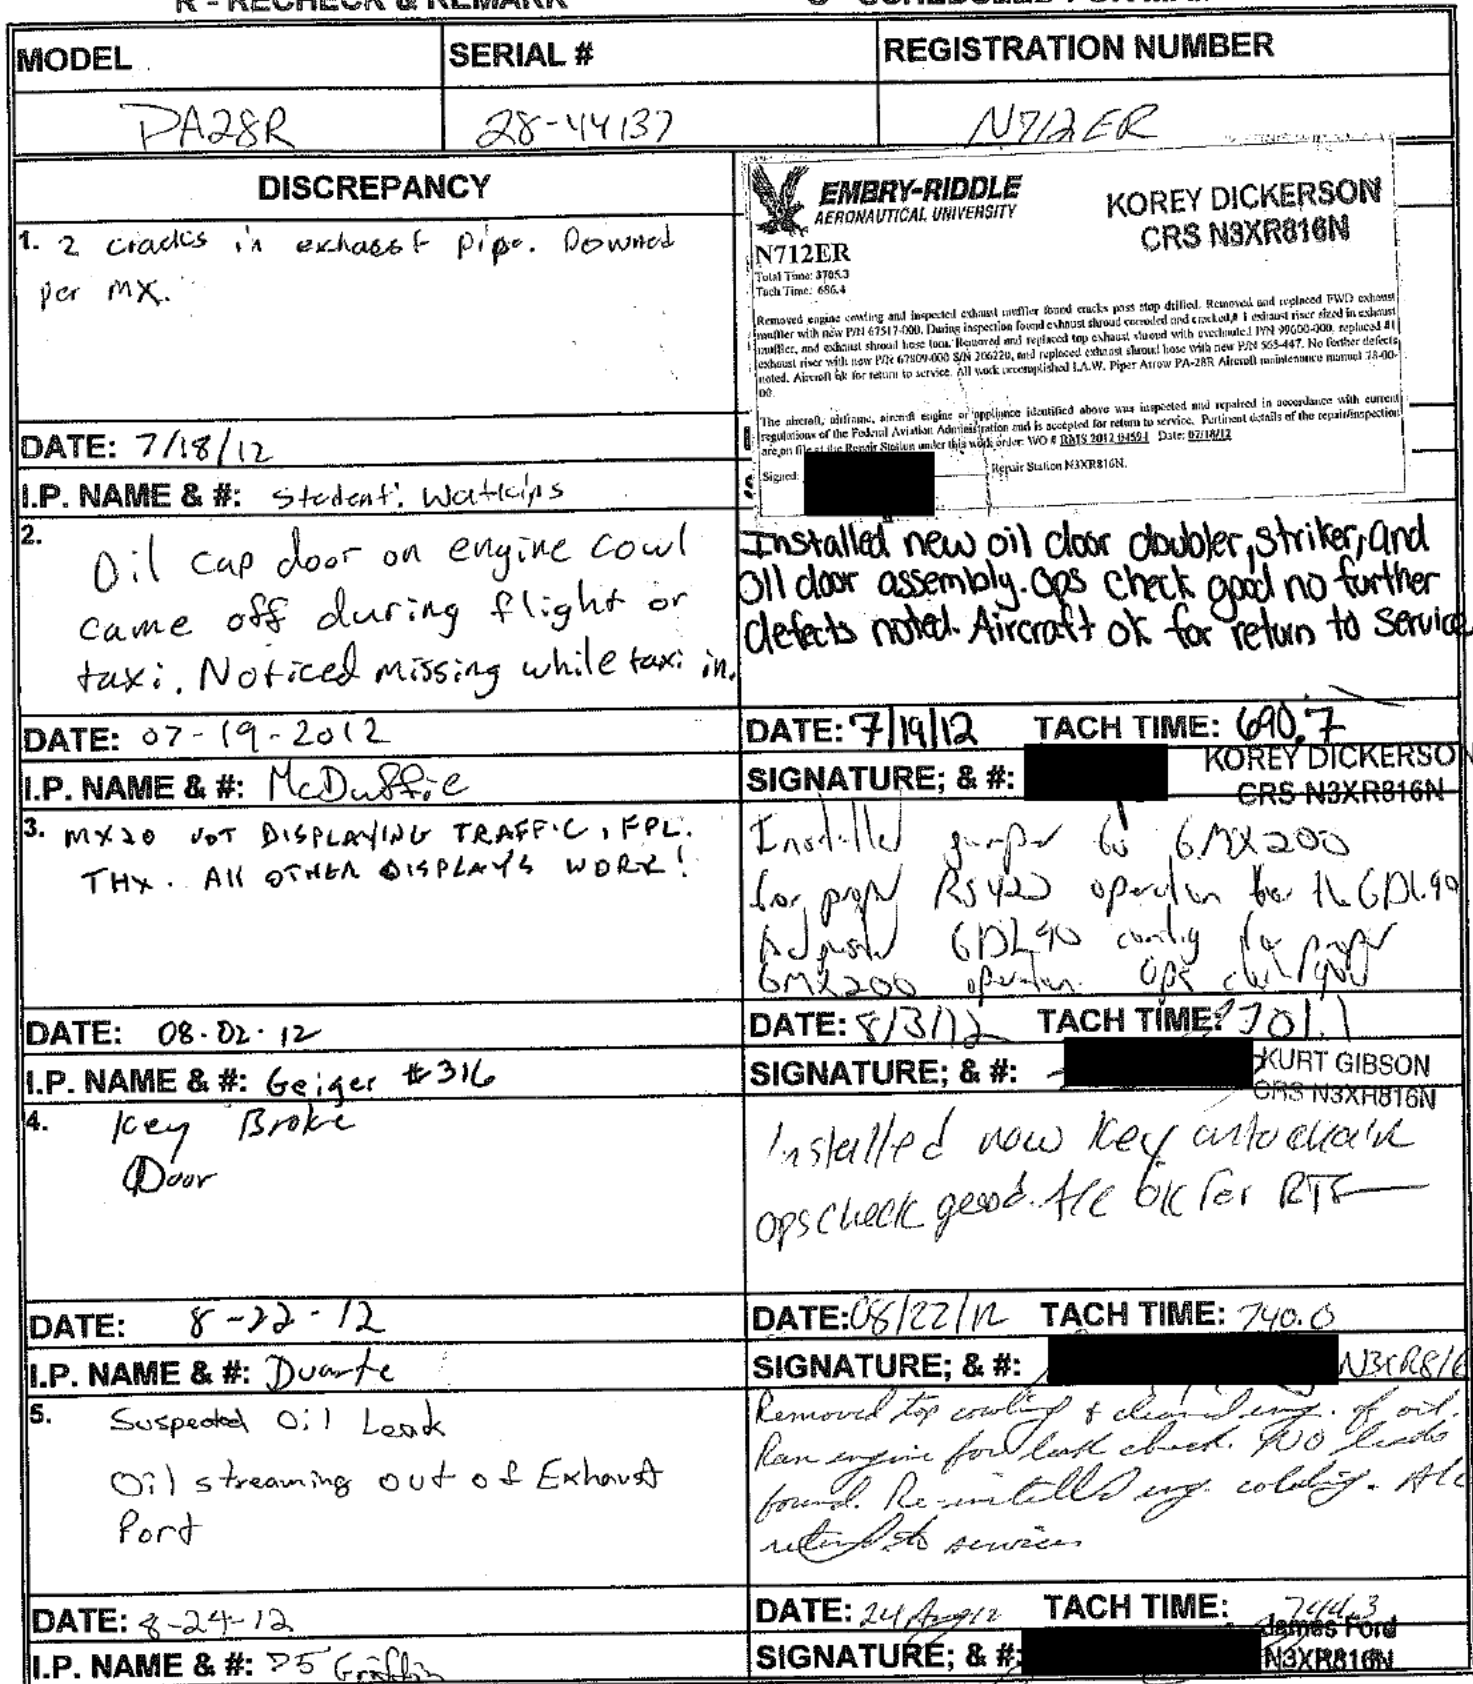 R - RECHECK & REMARK
MODEL SERIAL # REGISTRATION NUMBER
PA28R 28-44137 N712ER
DISCREPANCY
1. 2 cracks in exhaust pipe. Downed
per MX.
DATE: 7/18/12
I.P. NAME & #: Student: Watkins
EMBRY-RIDDLE
AERONAUTICAL UNIVERSITY
KOREY DICKERSON
CRS N3XR816N
N712ER
Total Time: 3705.3
Tach Time: 686.4
Removed engine cowling and inspected exhaust muffler found cracks past stop drilled. Removed and replaced FWD exhaust
muffler with new P/N 67517-000. During inspection found exhaust shroud corroded and cracked, # 1 exhaust riser sized in exhaust
muffler, and exhaust shroud hose torn. Removed and replaced top exhaust shroud with overhauled P/N 99600-000, replaced #1
exhaust riser with new P/N 67809-000 S/N 206220, and replaced exhaust shroud hose with new P/N 565-447. No further defects
noted. Aircraft ok for return to service. All work accomplished I.A.W. Piper Arrow PA-28R Aircraft maintenance manual 78-00-
00.
The aircraft, airframe, aircraft engine or appliance identified above was inspected and repaired in accordance with current
regulations of the Federal Aviation Administration and is accepted for return to service. Pertinent details of the repair/inspection
are on file at the Repair Station under this work order: WO # Date: 07/18/12
Signed: Repair Station N3XR816N.
2. Oil cap door on engine cowl
came off during flight or
taxi. Noticed missing while taxi in.
DATE: 07-19-2012
I.P. NAME & #: McDuffie
Installed new oil door doubler, striker, and
oil door assembly. Ops check good no further
defects noted. Aircraft ok for return to service
DATE: 7/19/12 TACH TIME: 690.7
SIGNATURE; & #: KOREY DICKERSON
CRS N3XR816N
3. MX20 NOT DISPLAYING TRAFFIC, FPL.
THX. All OTHER DISPLAYS WORK!
DATE: 08.02.12
I.P. NAME & #: Geiger #316
Installed jumper to GMX200
for proper RS422 operation for the GDL90
Adjusted GDL90 config for proper
GMX200 operation. Ops check good
DATE: 8/3/12 TACH TIME: 701.1
SIGNATURE; & #: KURT GIBSON
CRS N3XR816N
4. Key Broke
Door
DATE: 8-22-12
I.P. NAME & #: Duarte
Installed new key
ops check good. A/C OK for RTS
DATE: 08/22/12 TACH TIME: 740.0
SIGNATURE; & #: N3XR816
5. Suspected Oil Leak
Oil streaming out of Exhaust
Port
DATE: 8-24-12
I.P. NAME & #: Griffin
Removed top cowling & cleaned eng. of oil.
Ran engine for leak check. NO leaks
found. Re-installed eng. colding. A/C
returned to service
DATE: 24 Aug 12 TACH TIME: 744.3
James Ford
SIGNATURE; & #: N3XR816N